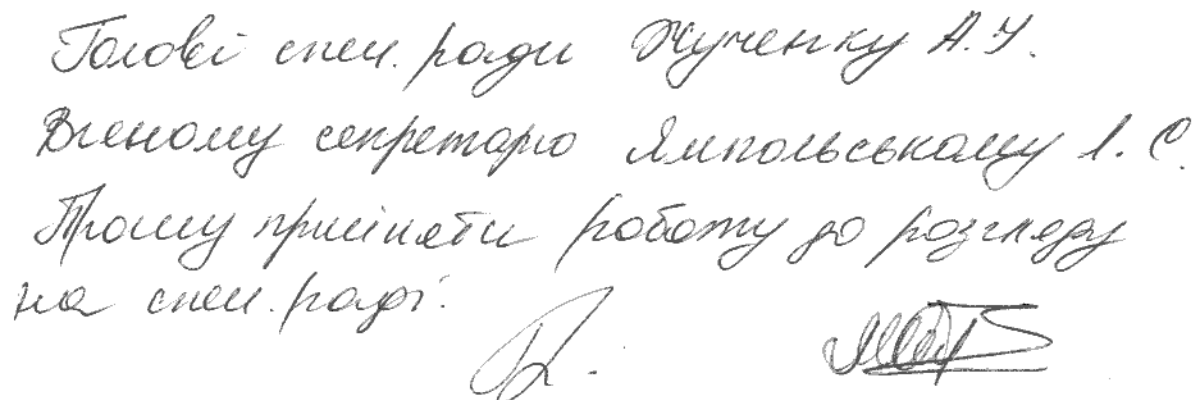 Голові спец. ради Жученку А.І.
Вченому секретарю Ямпольському Л. С.
Прошу прийняти роботу до розгляду
на спец. раді.